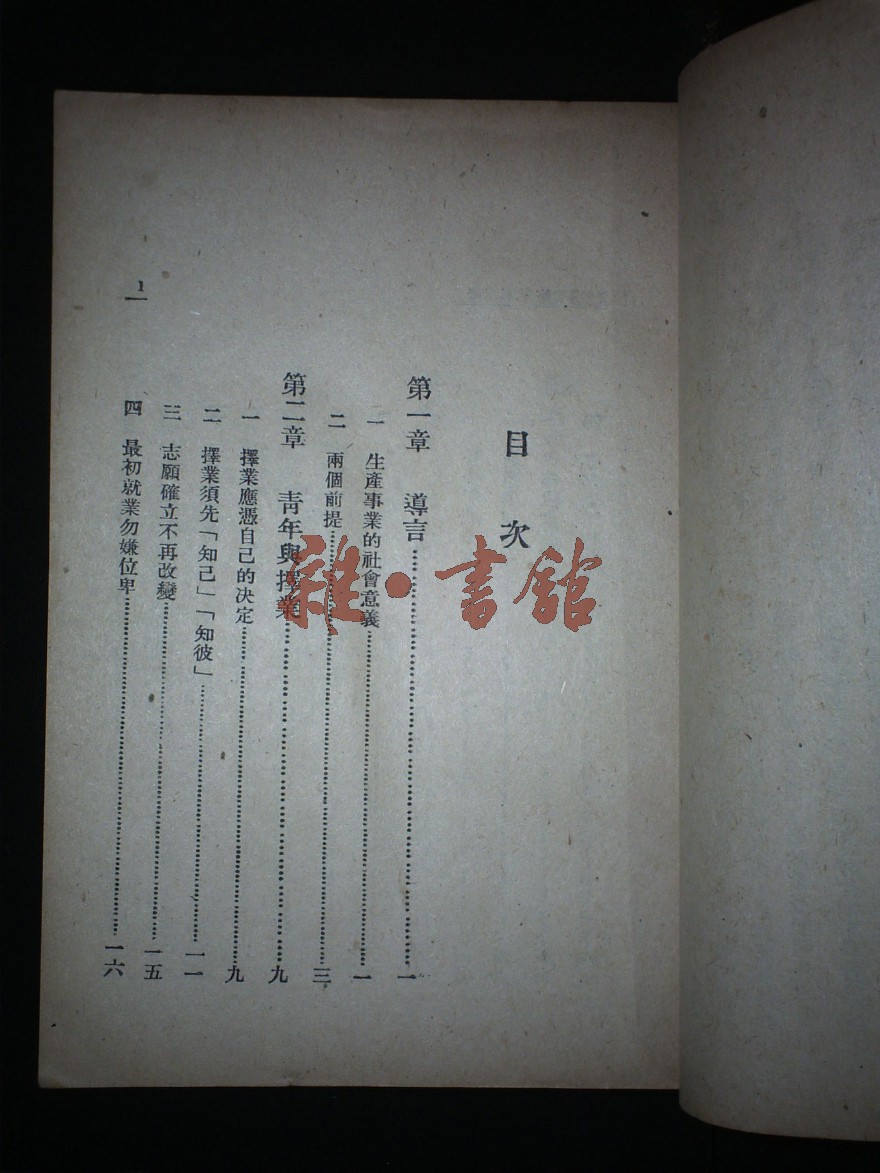 目次
第一章　導言……一
一　生產事業的社會意義……一
二　兩個前提……三
第二章　靑年與擇業……九
一　擇業應憑自己的决定……九
二　擇業須先「知己」「知彼」……一一
三　志願確立不再改變……一五
四　最初就業勿嫌位卑……一六
1
雜·書館